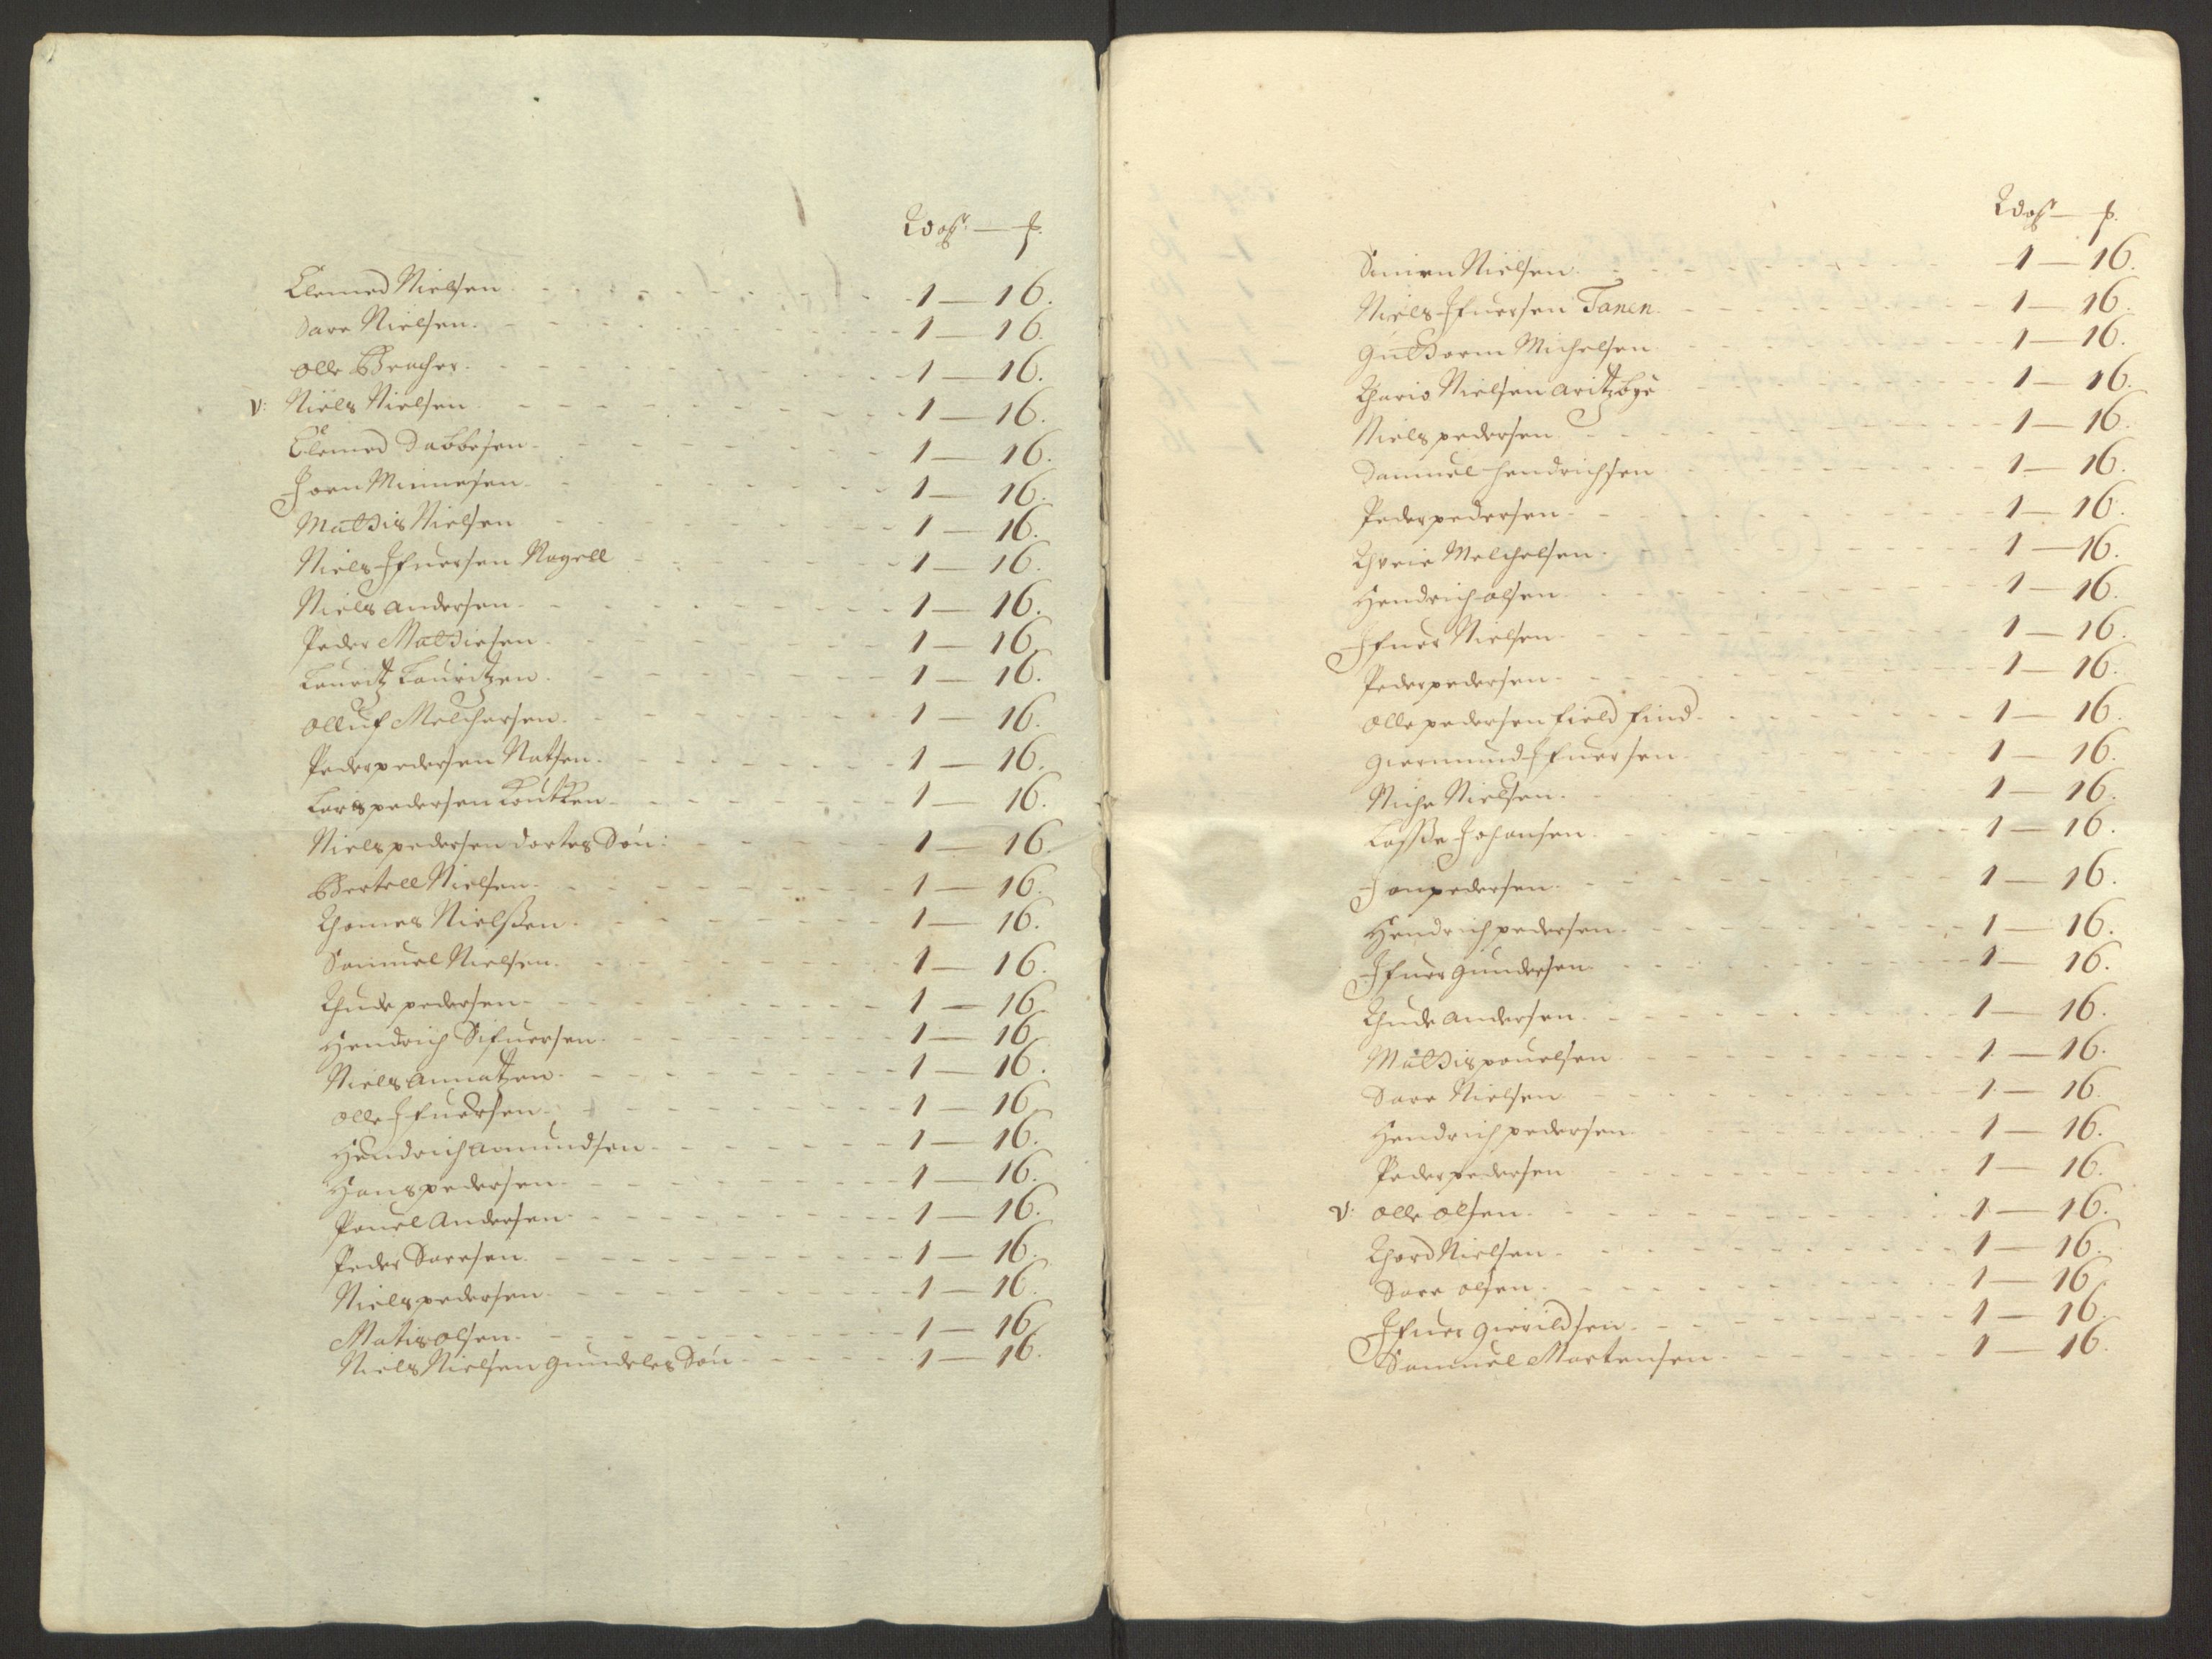 Rdr — ß.
Clemed Nielsen 1 — 16.
Sare Nielsen 1 — 16.
Olle Bracher 1 — 16.
V: Niels Nielsen 1 — 16.
Clemed Dabbesen 1 — 16.
Joen Minnesen 1 — 16.
Matthis Nielsen 1 — 16.
Niels Ifuersen Nagell 1 — 16.
Niels Andersen 1 — 16.
Peder Mathiesen 1 — 16.
Lauritz Lauritzen 1 — 16.
Olluf Melchersen 1 — 16.
Peder pedersen Natsen 1 — 16.
Lars pedersen 1 — 16.
Niels pedersen dortes Søn: 1 — 16.
Bertell Nielsen 1 — 16.
Thomes Nielssen 1 — 16.
Samuel Nielsen 1 — 16.
Thude pedersen 1 — 16.
Hendrich Sifuersen 1 — 16.
Niels Amnatzen 1 — 16.
Olle Ifuersen 1 — 16.
Hendrich Amundsen 1 — 16.
Hans pedersen 1 — 16.
Pouel Andersen 1 — 16.
Peder Saresen 1 — 16.
Niels pedersen 1 — 16.
Matis olsen 1 — 16.
Niels Nielsen Gundeles Søn 1 — 16.
Rdr — ß.
Simen Nielsen 1 — 16.
Niels Ifuersen Tanen 1 — 16.
Guttorm Michelsen 1 — 16.
Nielsen 1 — 16.
Niels pedersen 1 — 16.
Samuel Hendrichsen 1 — 16.
Peder pedersen 1 — 16.
Melchelsen 1 — 16.
Hendrich olsen 1 — 16.
Ifuer Nielsen 1 — 16.
Peder pedersen 1 — 16.
Olle pedersen field find 1 — 16.
Giermund Ifuersen 1 — 16.
Niche Nielsen 1 — 16.
Lasse Johansen 1 — 16.
Jon pedersen 1 — 16.
Hendrich pedersen 1 — 16.
Ifuer Gundersen 1 — 16.
Thude Andersen 1 — 16.
Matthis pouelsen 1 — 16.
Sare Nielsen 1 — 16.
Hendrich pedersen 1 — 16.
Peder pedersen 1 — 16.
V: Olle olsen 1 — 16.
Thord Nielsen 1 — 16.
Sare olsen 1 — 16.
Ifuer Gierildsen 1 — 16.
Samuel Mortensen 1 — 16.